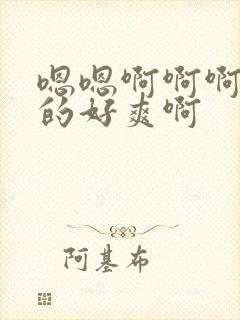 嗯嗯啊啊啊
的好爽啊
阿基布